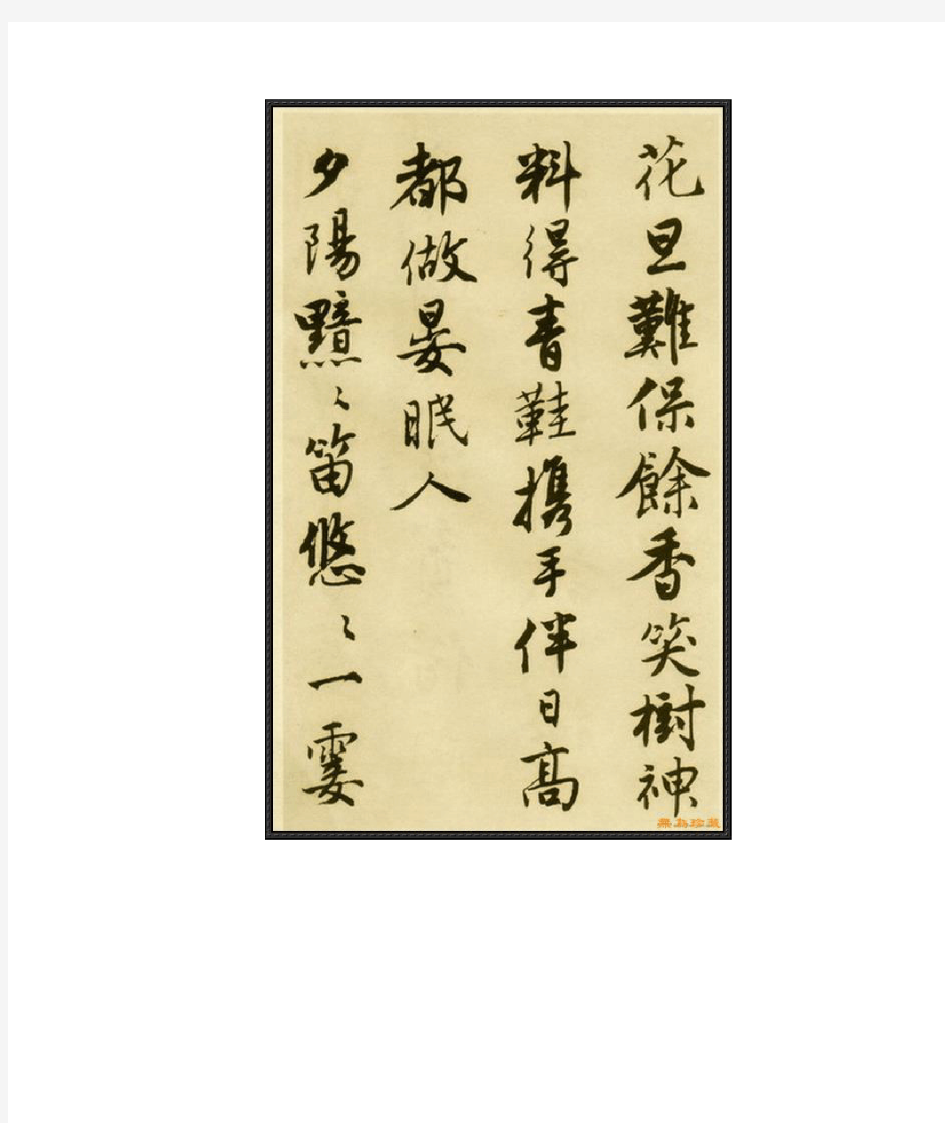 花旦難保餘香笑樹神
料得青鞋携手伴日高
都做晏眠人
夕陽黯々笛悠々一霎
無為珍藏